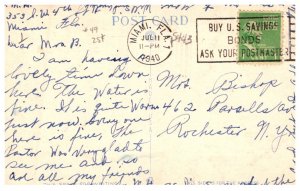 353 S. W. 4th St
Miami Fla.
Dear Mrs B.
I am having
lovely time down
here. The Water is
fine. It is quite Warm
just now. Every one
here is fine. The
Pastor Was Very glad to
see me and so
are all my friends
#49
25¢
POST CARD
MIAMI, FLA.
JUL 11
11-PM
1940
BUY U.S. SAVINGS
BONDS
ASK YOUR POSTMASTER
Mrs. Bishop
462 Parsells Ave
Rochester N.Y.